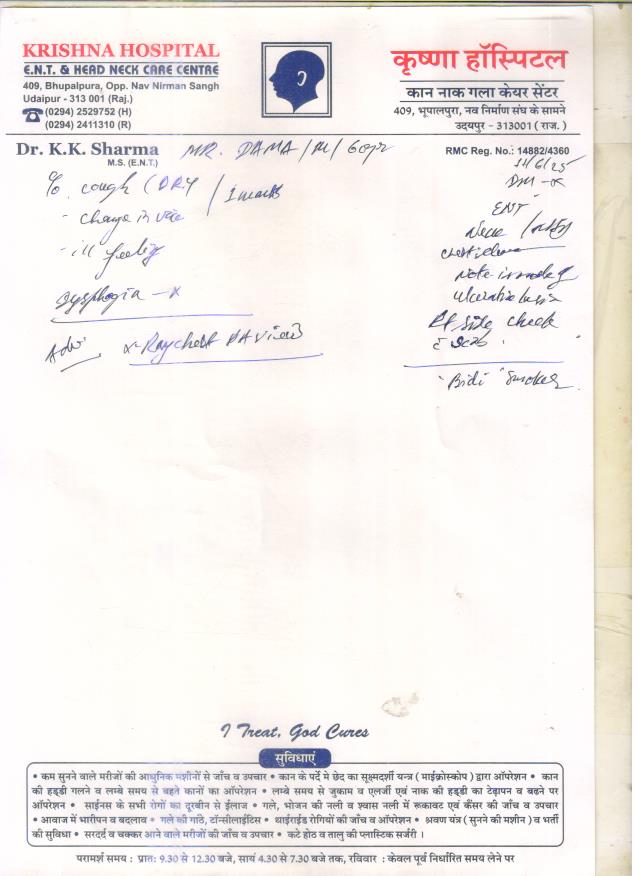 KRISHNA HOSPITAL
E.N.T. & HEAD NECK CARE CENTRE
409, Bhupalpura, Opp. Nav Nirman Sangh
Udaipur - 313 001 (Raj.)
(0294) 2529752 (H)
(0294) 2411310 (R)
कृष्णा हॉस्पिटल
कान नाक गला केयर सेंटर
409, भूपालपुरा, नव निर्माण संघ के सामने
उदयपुर - 313001 ( राज. )
Dr. K.K. Sharma
M.S. (E.N.T.)
MR. DAMA / M / 60yr
RMC Reg. No.: 14882/4360
14/6/25
DM -x
c/o cough (DRY / 1 month
- change in voice
- ill feeling
Dysphagia -x
Adv
x-Ray chest PA view
ENT
Neck
Rt side cheek
"Bidi" Smoker
I Treat, God Cures
सुविधाएं
• कम सुनने वाले मरीजों की आधुनिक मशीनों से जाँच व उपचार • कान के पर्दे मे छेद का सूक्ष्मदर्शी यन्त्र ( माईक्रोस्कोप ) द्वारा ऑपरेशन • कान
की हड्डी गलने व लम्बे समय से बहते कानों का ऑपरेशन • लम्बे समय से जुकाम व एलर्जी एवं नाक की हड्डी का टेढ़ापन व बढने पर
ऑपरेशन • साईनस के सभी रोगों का दूरबीन से ईलाज • गले, भोजन की नली व श्वास नली में रूकावट एवं कैंसर की जाँच व उपचार
• आवाज में भारीपन व बदलाव • गले की गांठे, टॉन्सीलाईटिस • थाईराईड रोगियों की जाँच व ऑपरेशन • श्रवण यंत्र ( सुनने की मशीन ) व भर्ती
की सुविधा • सरदर्द व चक्कर आने वाले मरीजों की जाँच व उपचार • कटे होठ व तालु की प्लास्टिक सर्जरी ।
परामर्श समय : प्रातः 9.30 से 12.30 बजे, सायं 4.30 से 7.30 बजे तक, रविवार : केवल पूर्व निर्धारित समय लेने पर